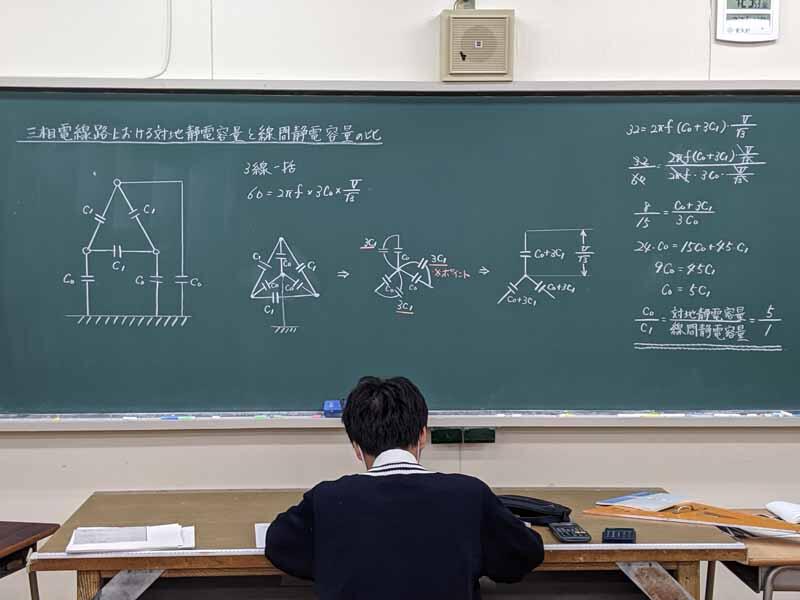 三相電線路における対地静電容量と線間静電容量の比
C₁ C₁
C₁
C₀ C₀ C₀
3線一括
60=2πf×3C₀×V/√3
C₁ C₀ C₁
C₀ C₀
C₁
⇒
3C₁ C₀
3C₁
C₀ C₀ ※ポイント
3C₁
⇒
C₀+3C₁ V/√3
C₀+3C₁ C₀+3C₁
32=2πf(C₀+3C₁)・V/√3
32/60=2πf(C₀+3C₁)・V/√3/2πf・3C₀・V/√3
8/15=C₀+3C₁/3C₀
24・C₀=15C₀+45・C₁
9C₀=45C₁
C₀=5C₁
C₀/C₁=対地静電容量/線間静電容量=5/1